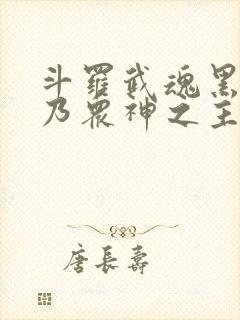 斗羅武魂黑
乃眾神之主
唐長壽